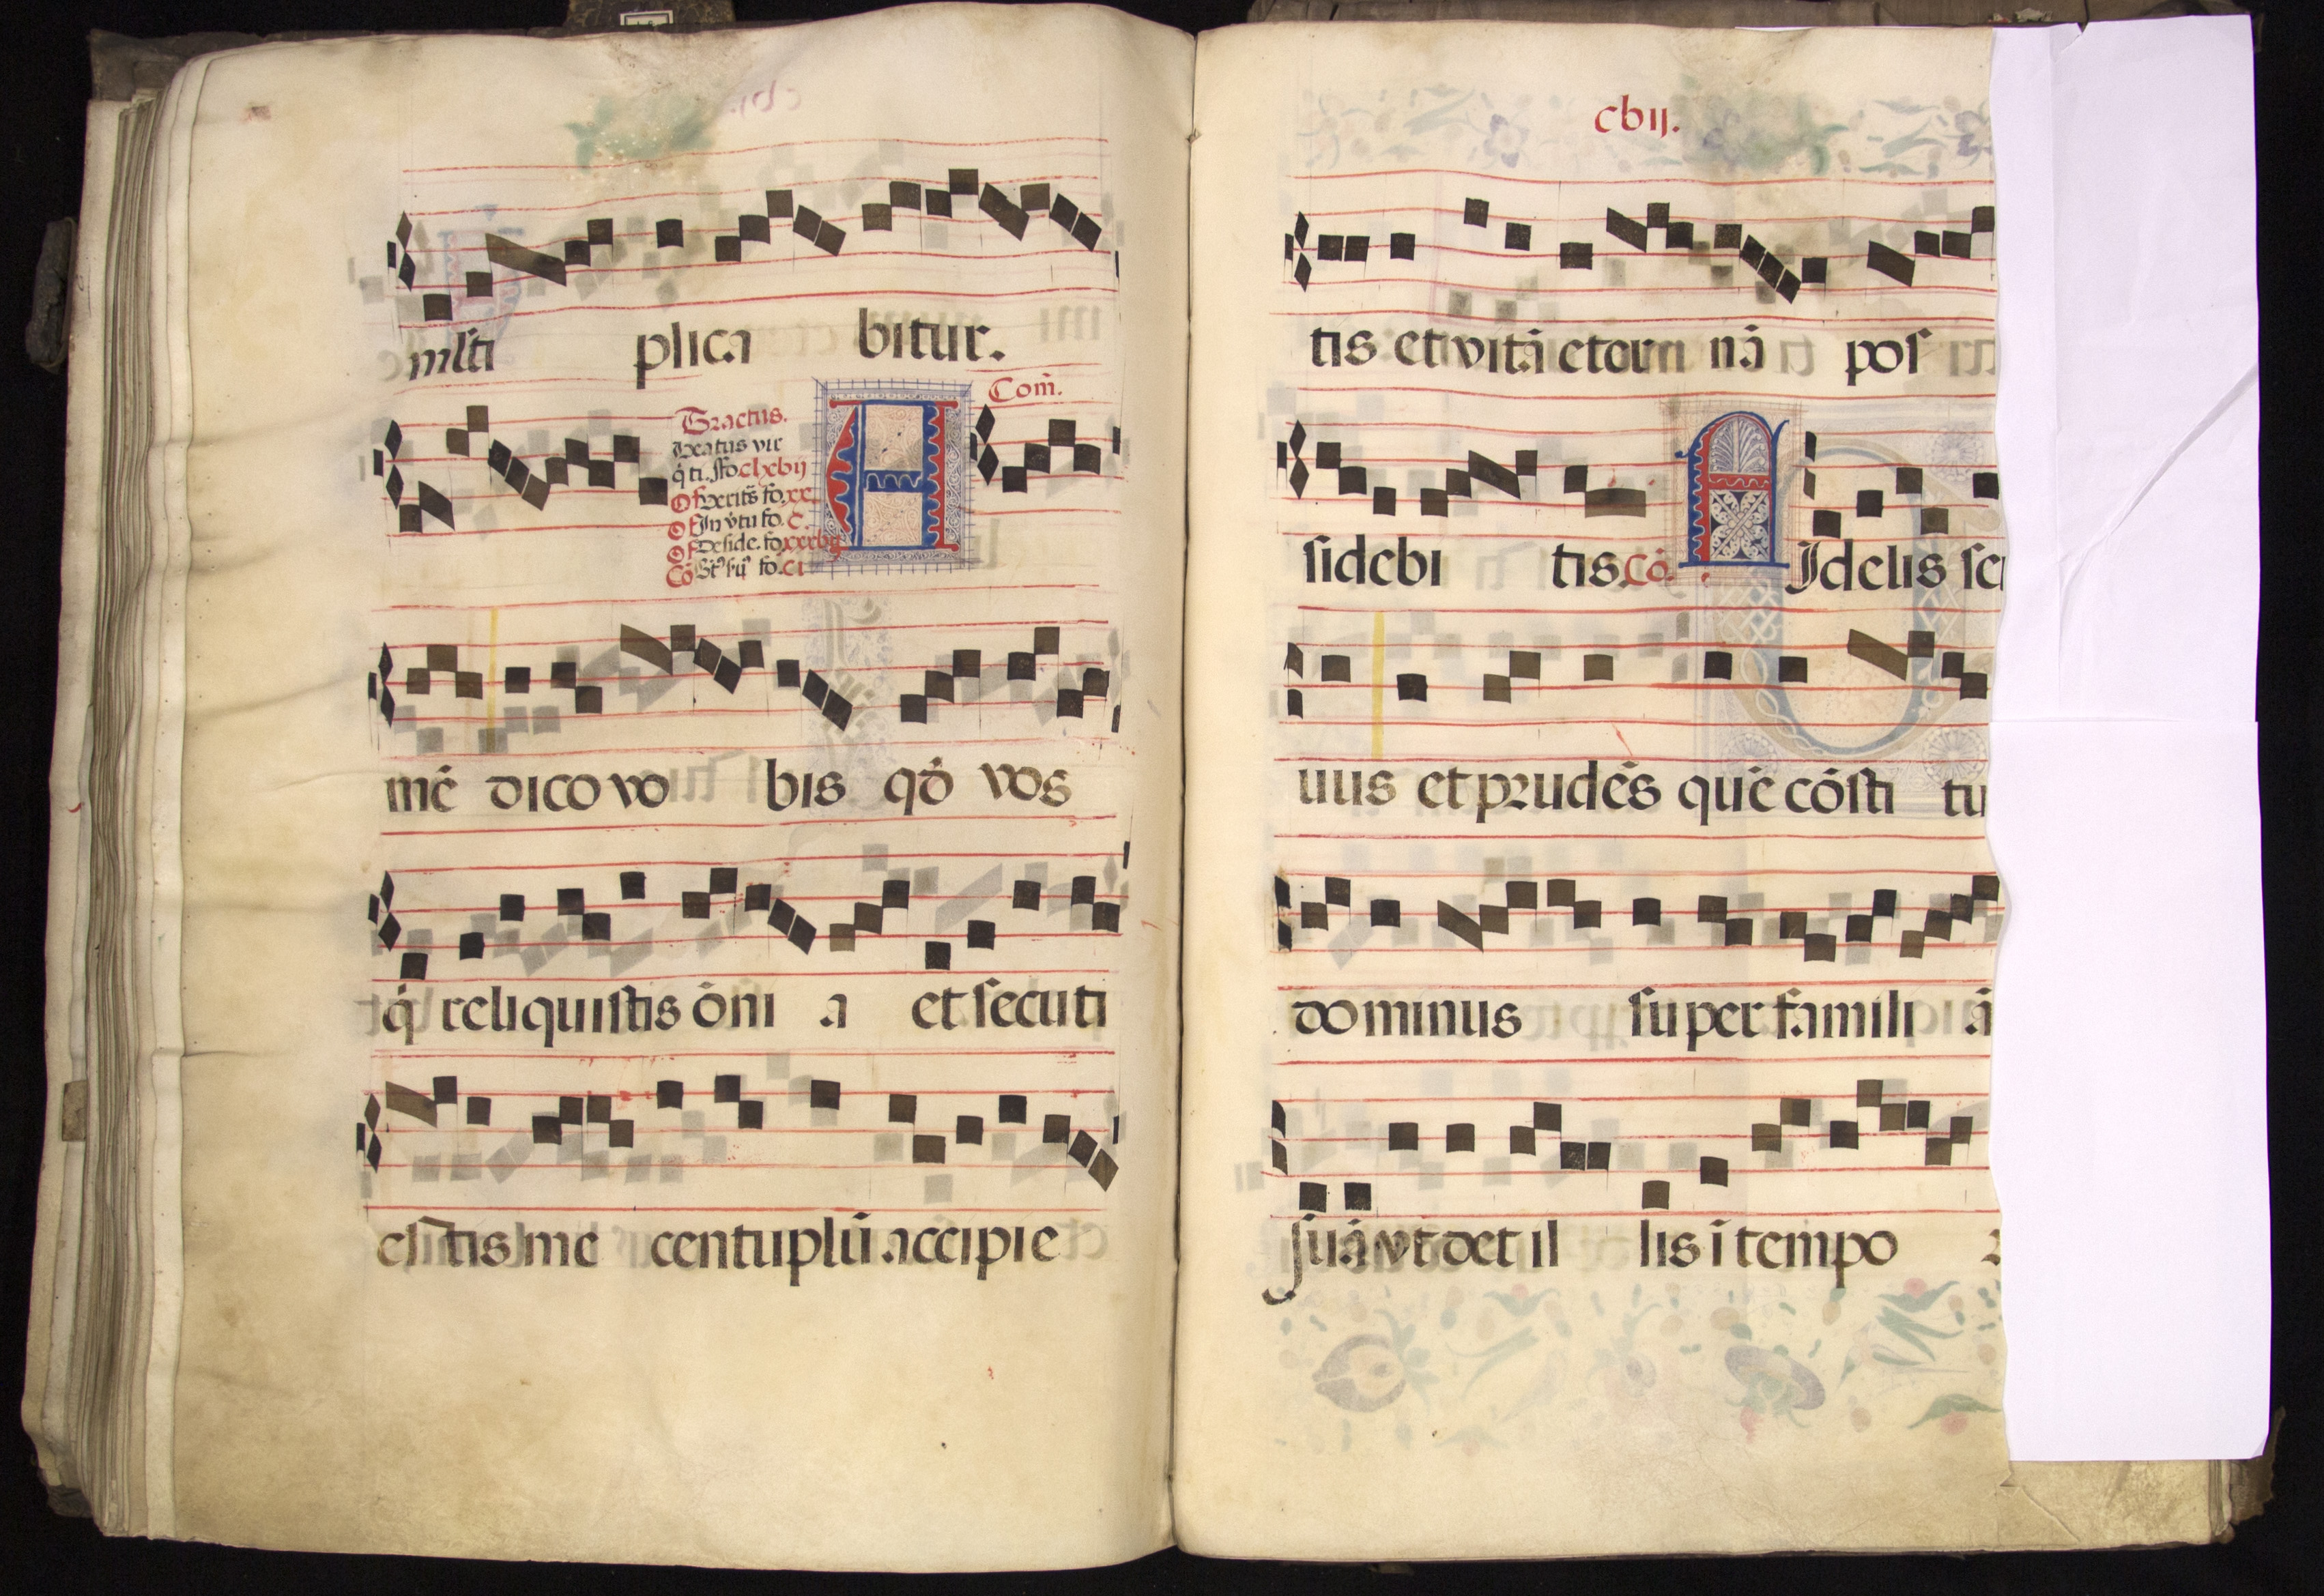 mlti plica bitur.
Com̄.
Tractus.
Beatus vir
q̇ ti. fo. clxbij
Of Veritas fo. xx.
Of In v̇tu fo. c.
Of Deside. fo. xxxbij
Cō fo. ci
A
mē dico vo bis qď vos
q̇ reliquistis ōni a et secuti
estis me centuplū accipie
cbij.
tis et vitā eter nā pos
sidebi tis. Cō. F Idelis ser
uus et prudēs quē cōsti tu
dominus super famili ā
suā vt det il lis ī tempo